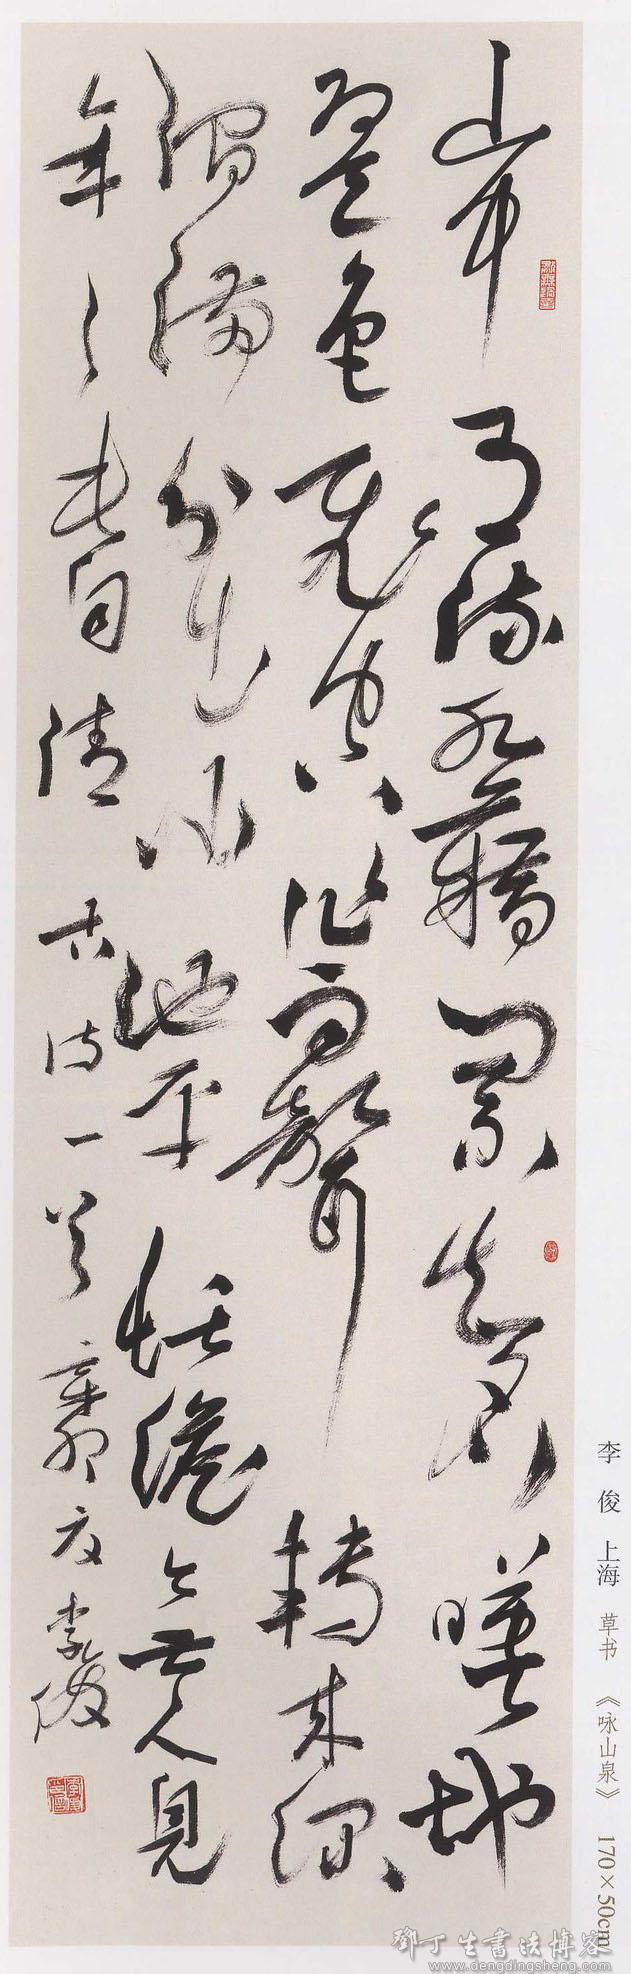 山中有流水藉問不知名暎地
爲天色飛空作雨聲轉來深
澗滿分出小池平恬澹無人見
年年長自清 古詩一首 辛卯夏 李俊
李俊 上海 草书 《咏山泉》 170×50cm
鄧丁生書法博客
www.dengdingsheng.com